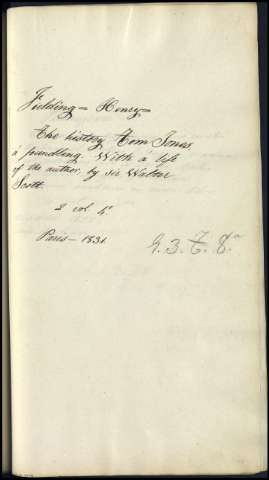 Fielding = Henry =
The history Tom Jones,
a foundling. With a life
of the author, by sir Walter
Scott.
2 vol
Paris - 1831
G. 3. T. 8.